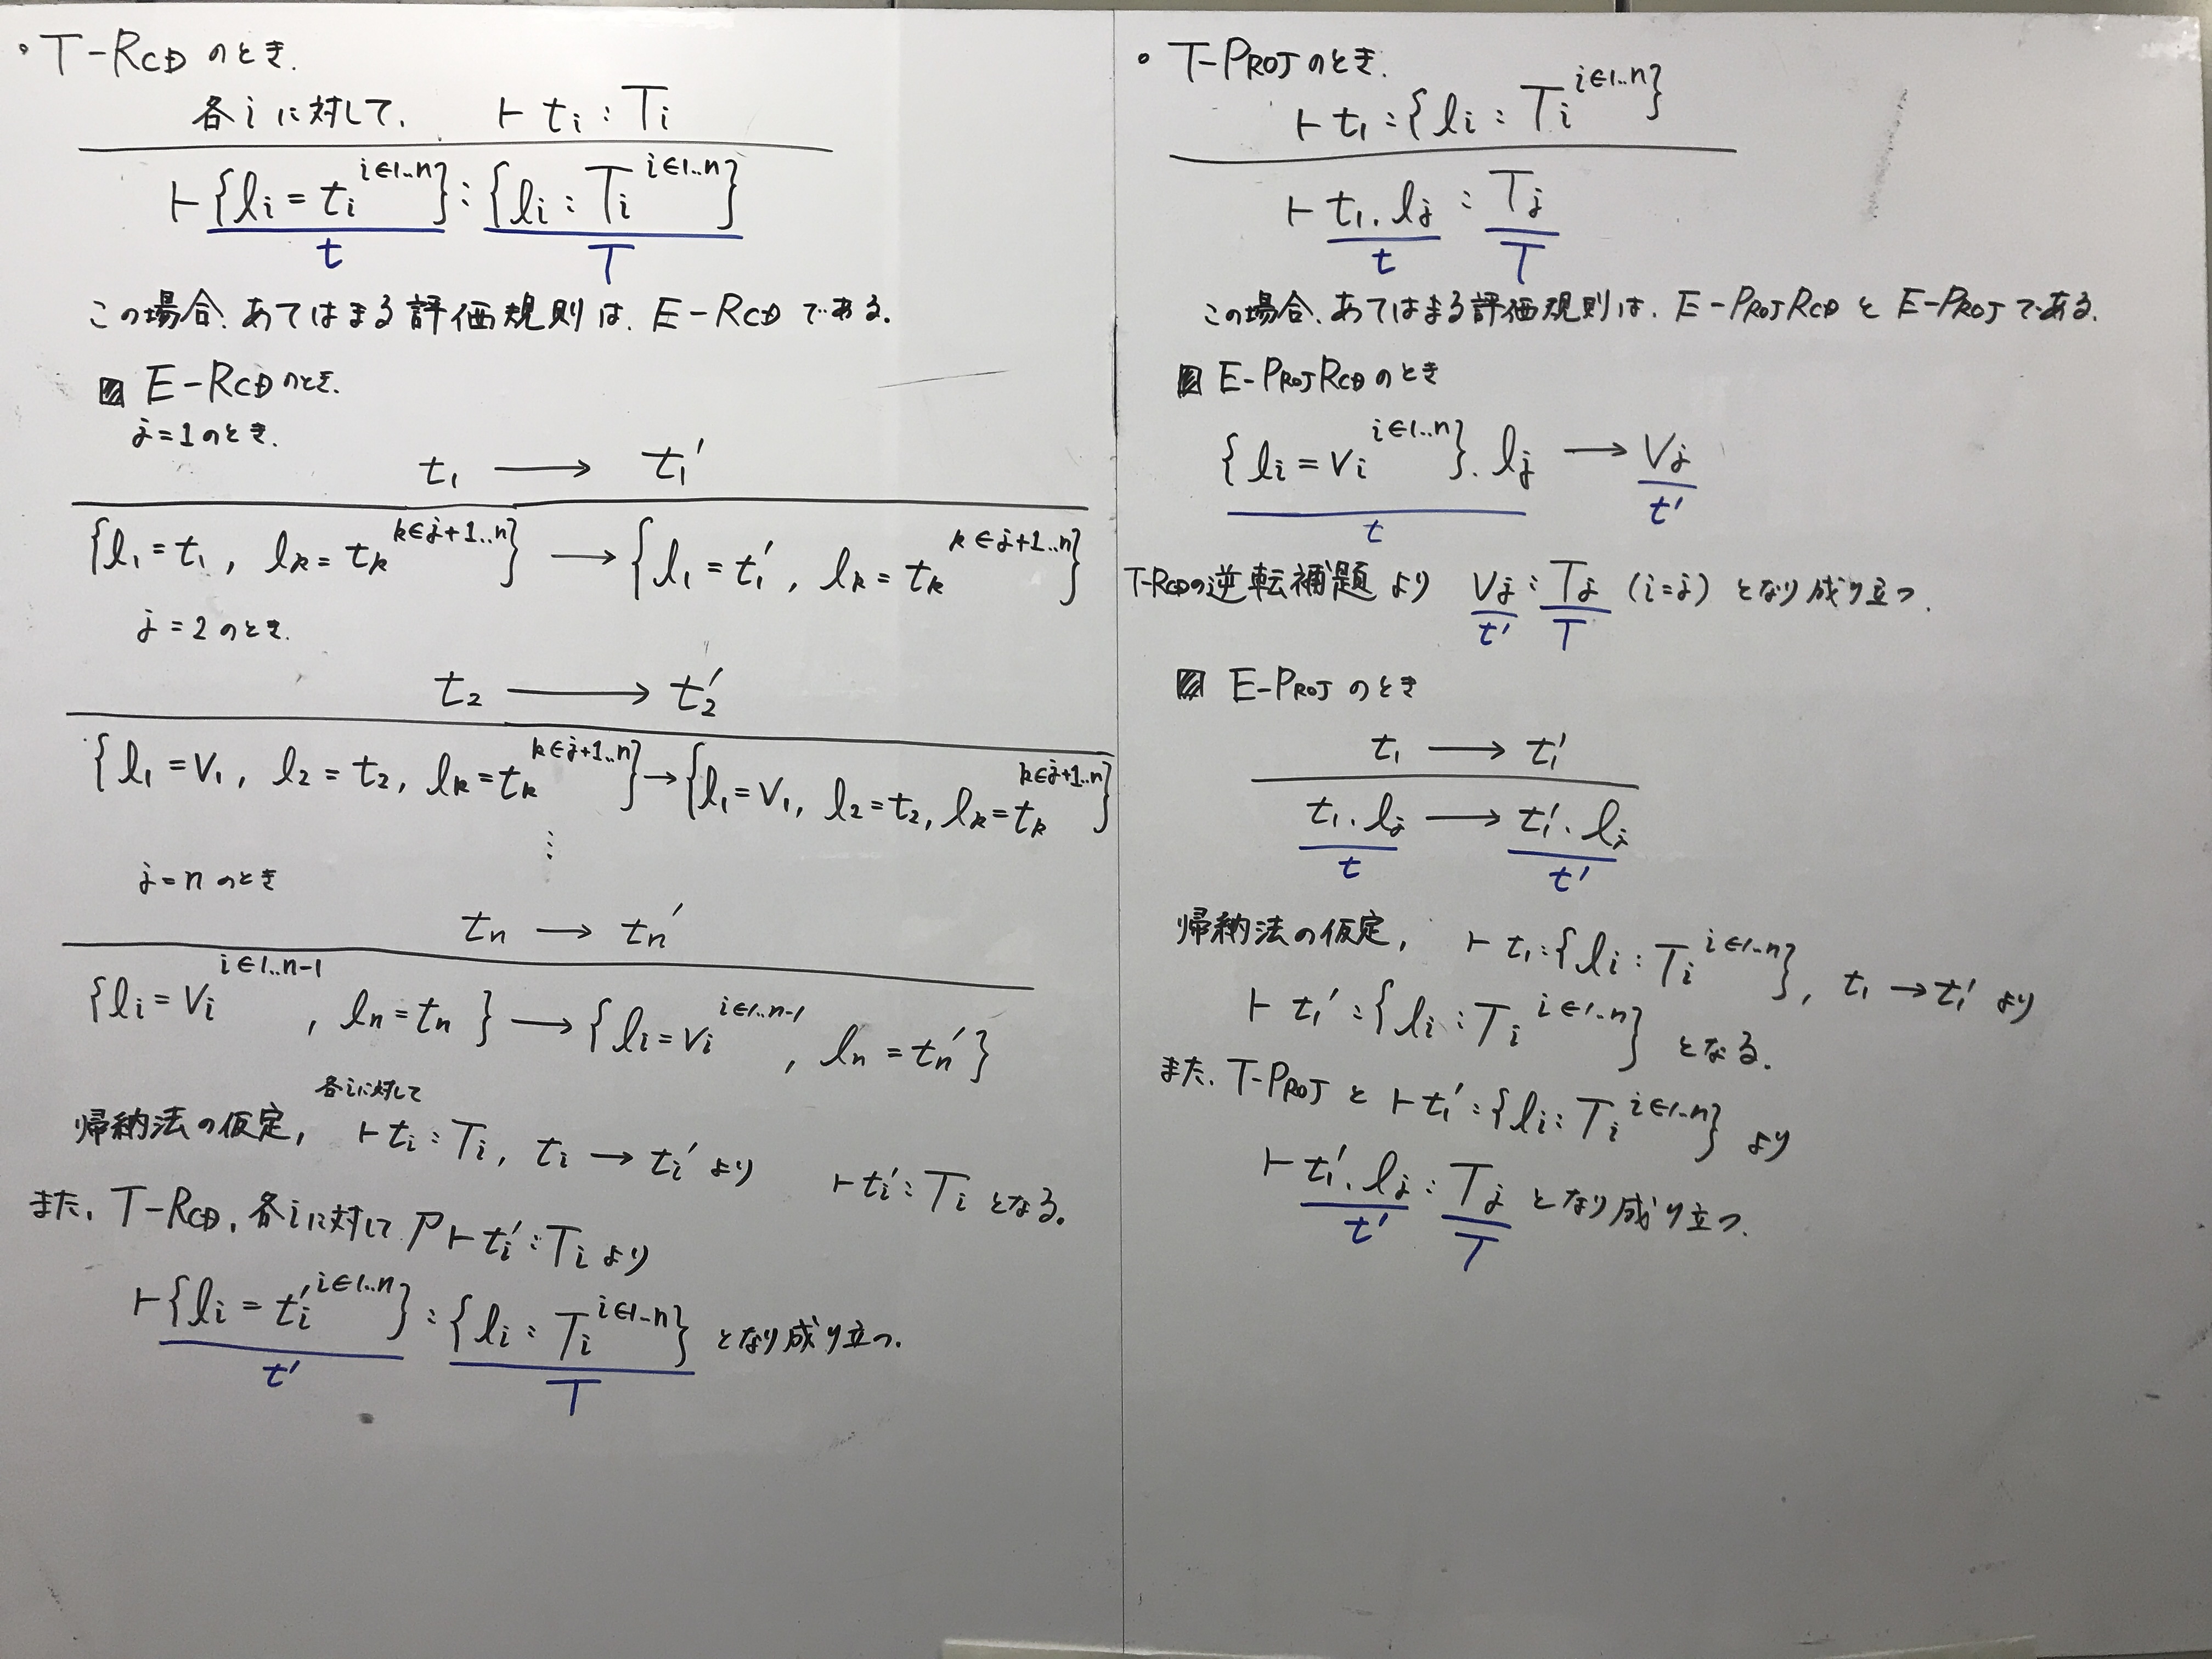 • T-RCD のとき.
各iに対して. ⊢ ti : Ti
⊢ {li = ti^{i∈1..n}} : {li : Ti^{i∈1..n}}
t T
この場合、あてはまる評価規則は、E-RCD である.
▨ E-RCD のとき.
j=1のとき.
t1 ⟶ t1'
{l1 = t1, lk = tk^{k∈j+1..n}} ⟶ {l1 = t1', lk = tk^{k∈j+1..n}}
j=2のとき.
t2 ⟶ t2'
{l1 = V1, l2 = t2, lk = tk^{k∈j+1..n}} → {l1 = V1, l2 = t2, lk = tk^{k∈j+1..n}}
⋮
j=nのとき
tn ⟶ tn'
{li = Vi^{i∈1..n-1}, ln = tn} ⟶ {li = Vi^{i∈1..n-1}, ln = tn'}
各iに対して
帰納法の仮定, ⊢ ti : Ti, ti → ti' より ⊢ ti' : Ti となる.
また. T-RCD, 各iに対して Γ ⊢ ti' : Ti より
⊢ {li = ti'^{i∈1..n}} : {li : Ti^{i∈1..n}} となり成り立つ.
t' T
• T-PROJ のとき.
⊢ t1 : {li : Ti^{i∈1..n}}
⊢ t1.lj : Tj
t T
この場合、あてはまる評価規則は. E-PROJRCD と E-PROJ である.
▨ E-PROJRCD のとき
{li = Vi^{i∈1..n}}.lj ⟶ Vj
t t'
T-RCDの逆転補題より Vj : Tj (i=j) となり成り立つ.
t' T
▨ E-PROJ のとき
t1 ⟶ t1'
t1.lj ⟶ t1'.lj
t t'
帰納法の仮定, ⊢ t1 : {li : Ti^{i∈1..n}}, t1 → t1' より
⊢ t1' : {li : Ti^{i∈1..n}} となる.
また. T-PROJ と ⊢ t1' : {li : Ti^{i∈1..n}} より
⊢ t1'.lj : Tj となり成り立つ.
t' T